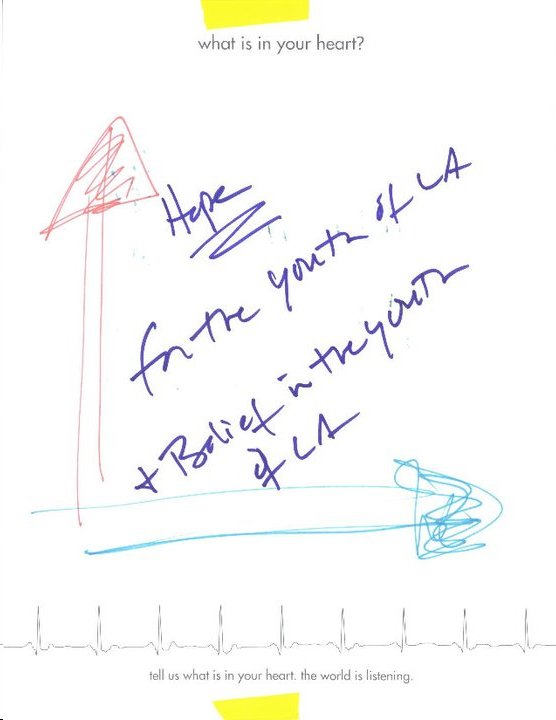 what is in your heart?
Hope
for the youth of LA
+ Belief in the youth
of LA
tell us what is in your heart. the world is listening.